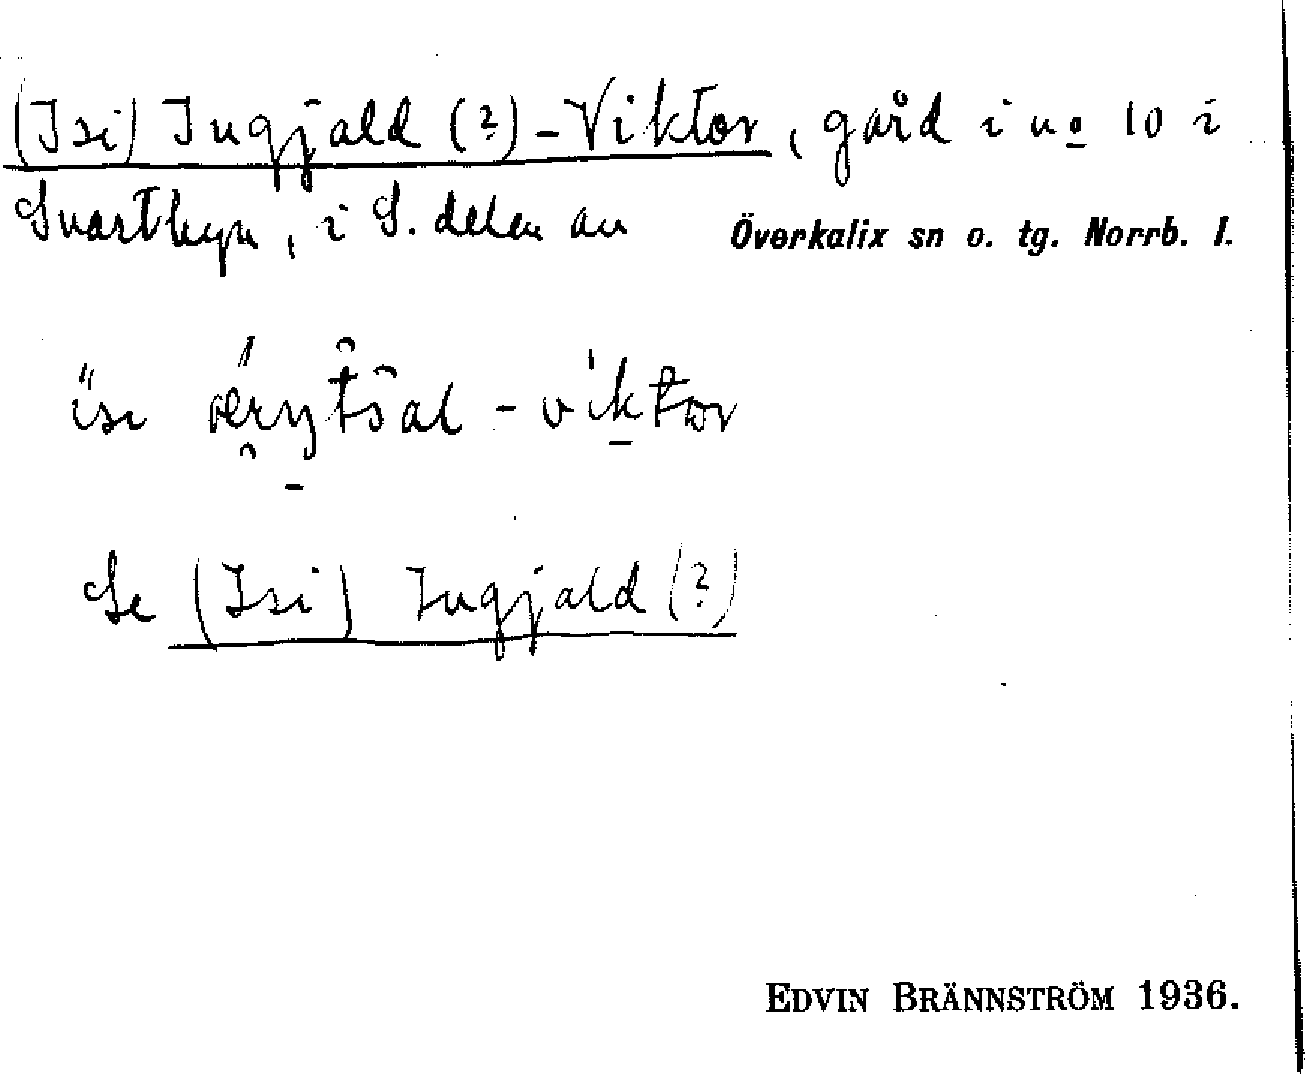 (Isi) Ingjald (?)-Viktor, gård i no 10 i
Svartbyn, i S. delen av Överkalix sn o. tg. Norrb. l.
Se (Isi) Ingjald (?)
EDVIN BRÄNNSTRÖM 1936.